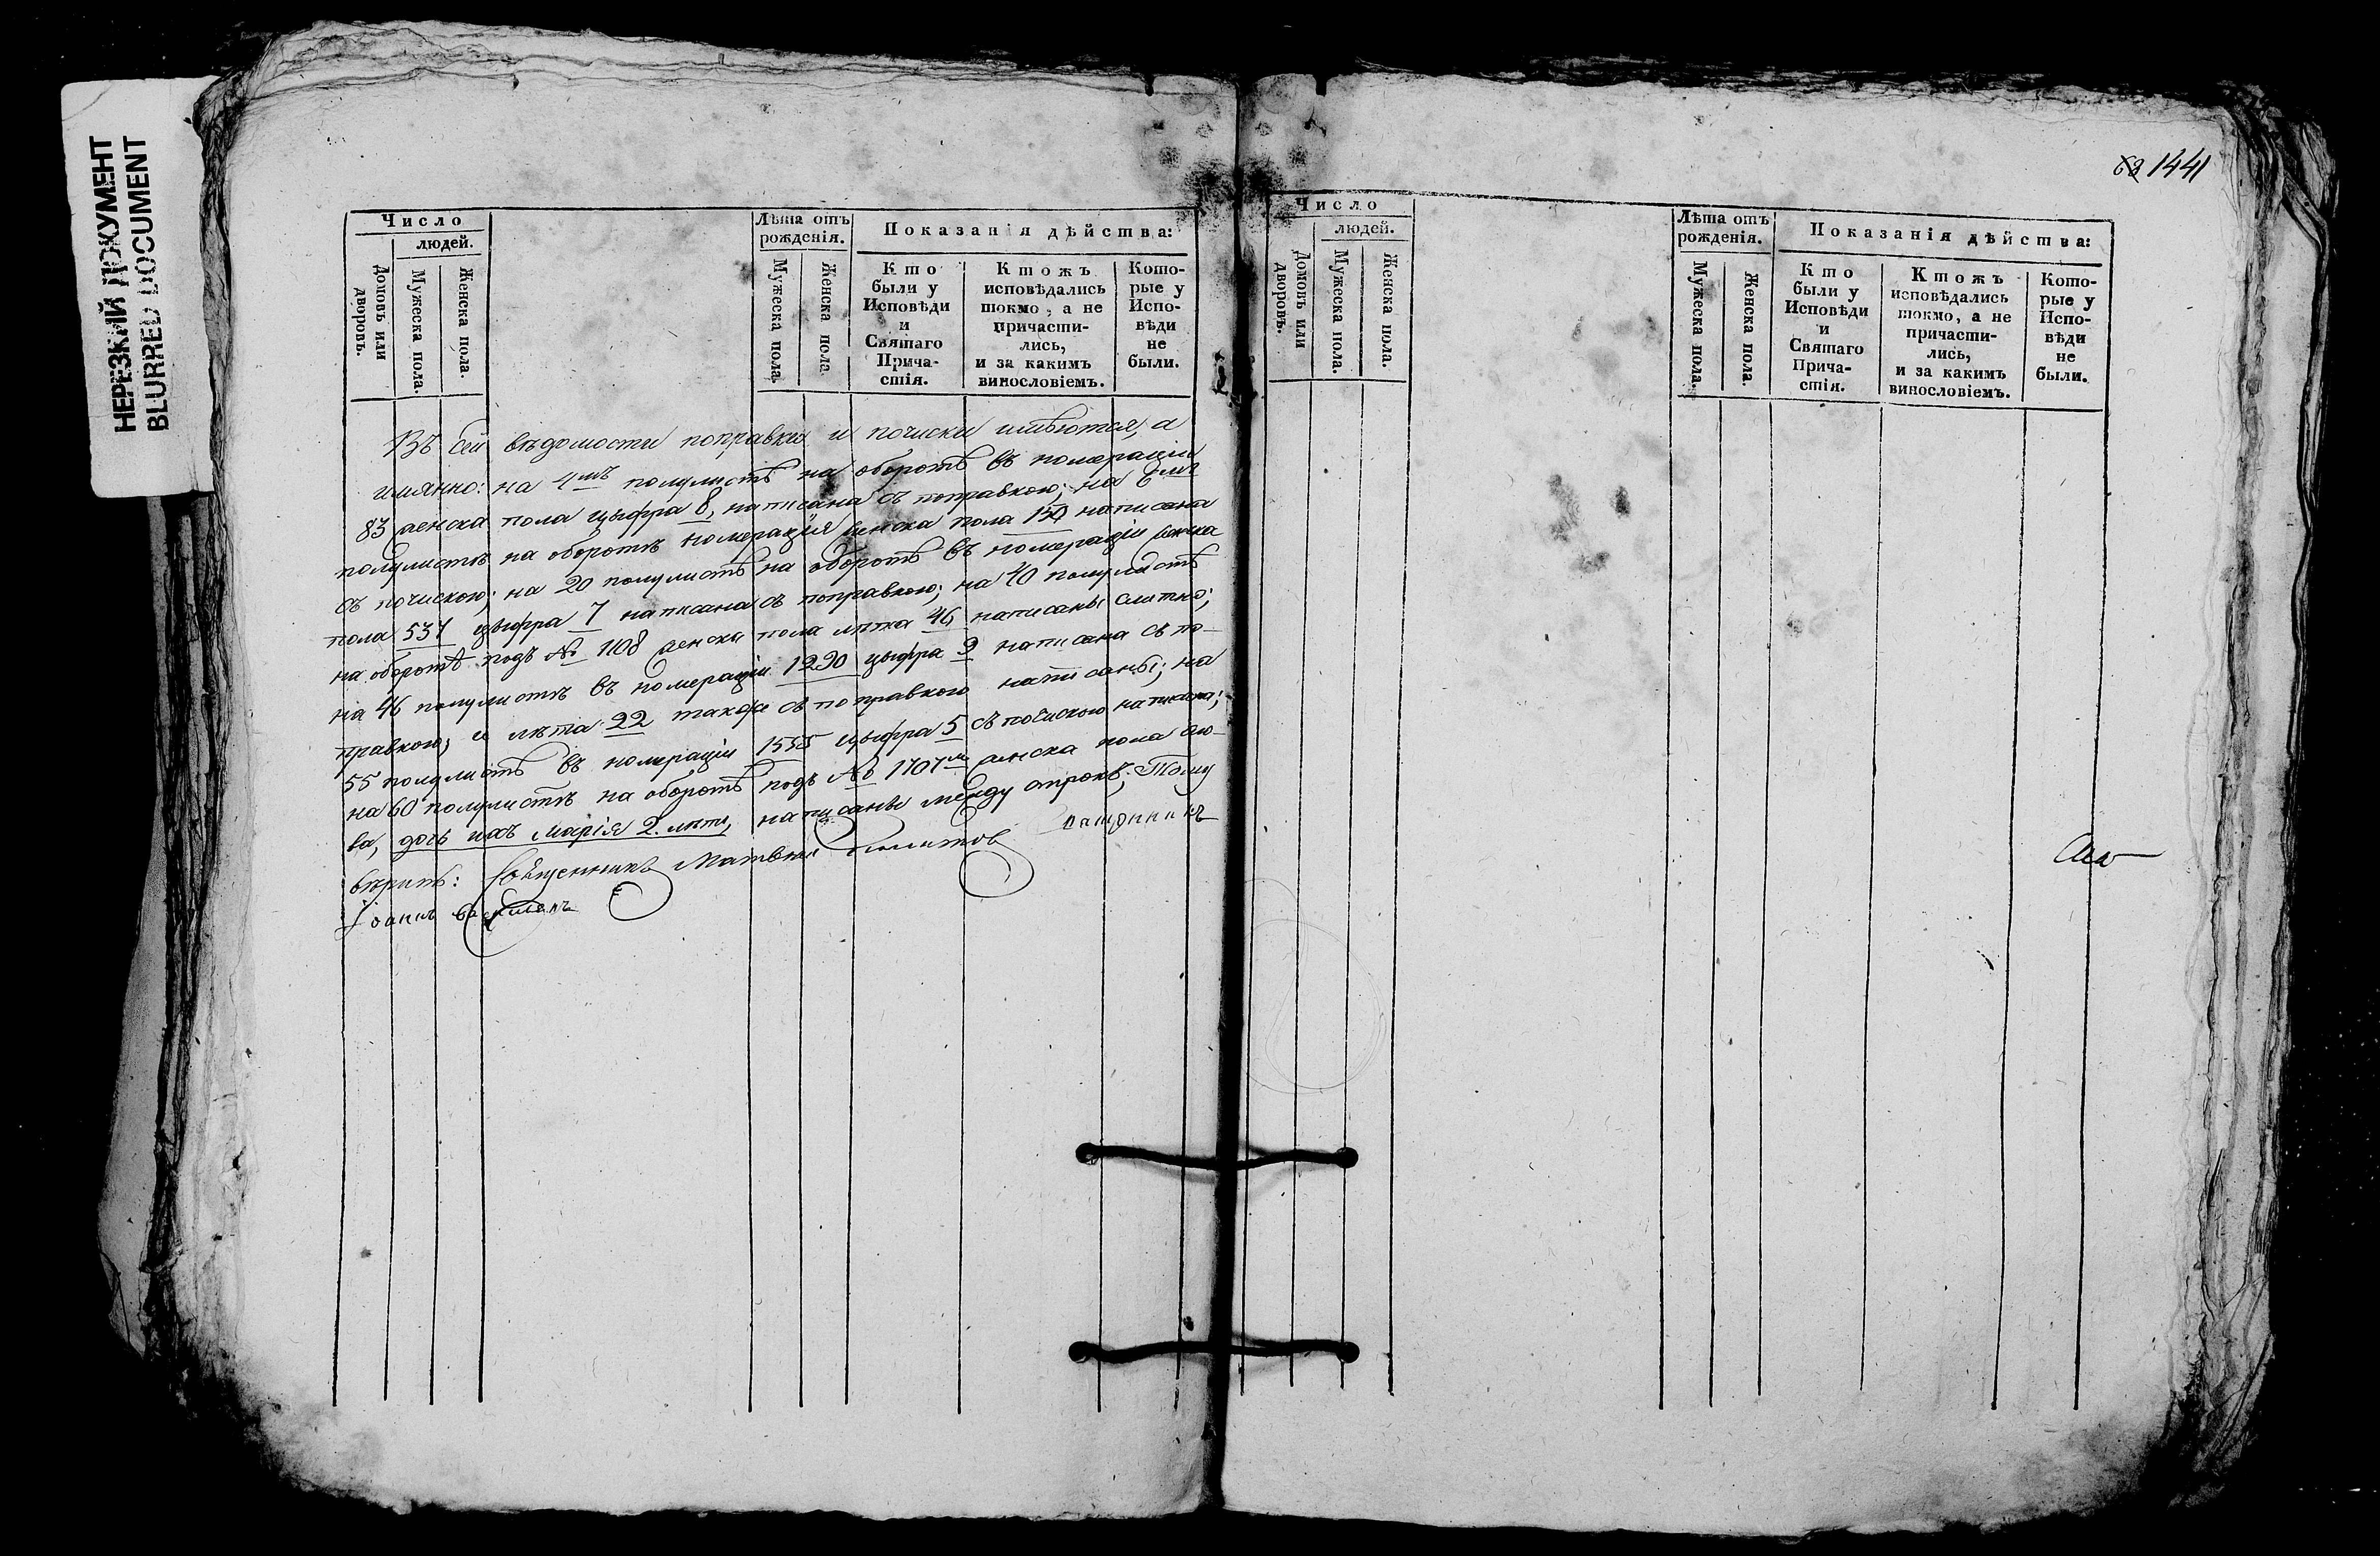 НЕРЕЗКИЙ ДОКУМЕНТ
BLURRED DOCUMENT
Число
людей.
Домовъ или дворовъ.
Мужеска пола.
Женска пола.
Лѣта отъ рожденія.
Мужеска пола.
Женска пола.
Показанія дѣйства:
Кто
были у
Исповѣди
и
Святаго
Прича-
стія.
Ктожъ
исповѣдались
токмо, а не
причасти-
лись,
и за какимъ
винословіемъ.
Кото-
рые у
Испо-
вѣди
не
были.
Въ сей вѣдомости поправки и почиски имѣются, а
имянно: на 4мъ полулистѣ на оборотѣ въ номераціи
83 женска пола цыфра 8, написана съ поправкою; на
полулистѣ на оборотѣ номерація женска пола 150 написана
съ почискою; на 20 полулистѣ на оборотѣ въ номераціи женска
пола 537 цыфра 7 написана съ поправкою; на 40 полулистѣ
на оборотѣ подъ № 1108 женска пола лѣта 46 написаны слитно;
на 46 полулистѣ въ номераціи 1290 цыфра 9 написана съ по-
правкою; и лѣта 22 также съ поправкою написаны; на
55 полулистѣ въ номераціи 1555 цыфра 5 съ почискою написана;
на 60 полулистѣ на оборотѣ подъ № 1707м женска пола сло-
ва, дочь ихъ Марія 2. лѣтъ, написаны между строкъ; Тому
вѣрить: Священникъ Матвѣй
Іоаннъ
1441
Число
людей.
Домовъ или дворовъ.
Мужеска пола.
Женска пола.
Лѣта отъ рожденія.
Мужеска пола.
Женска пола.
Показанія дѣйства:
Кто
были у
Исповѣди
и
Святаго
Прича-
стія.
Ктожъ
исповѣдались
токмо, а не
причасти-
лись,
и за какимъ
винословіемъ.
Кото-
рые у
Испо-
вѣди
не
были.